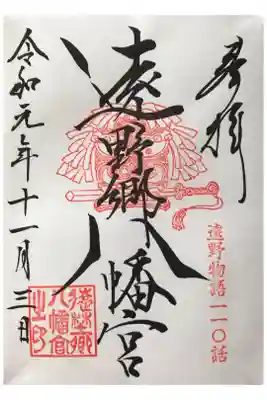 奉拝
遠野物語一一〇話
遠野郷八幡宮
令和元年十一月三日
遠野郷
八幡宮
之印